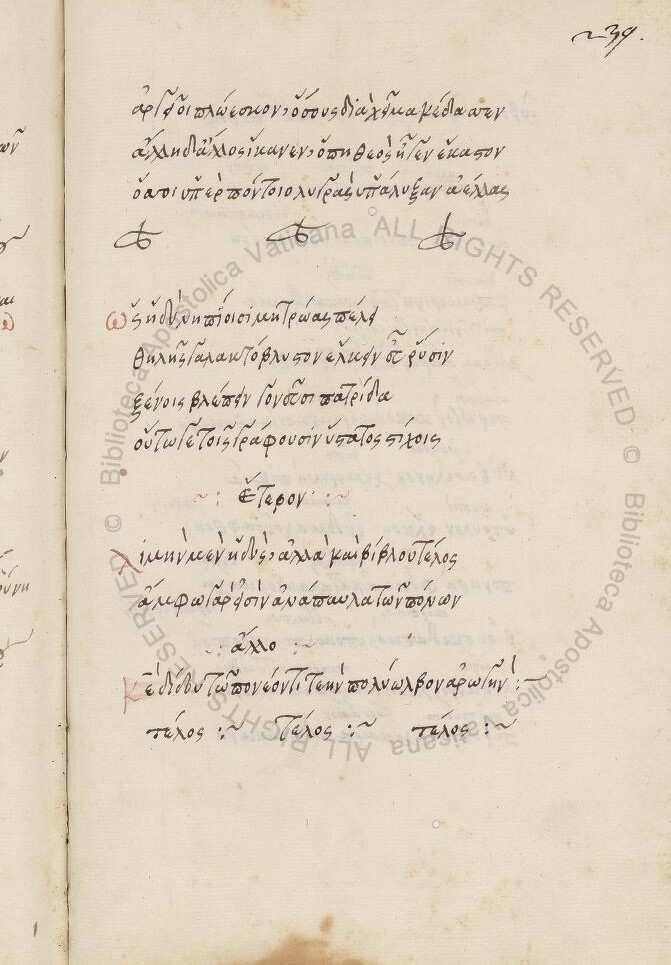 239.
ἀργεῖοι πλώεσκον, ὅσους διὰ χεῖμα κέδασσεν
ἄλλη δ᾽ ἄλλος ἵκανεν, ὅπη θεὸς ἦγεν ἕκαστον
ὅσσοι ὑπὲρ πόντοιο λυγρὰς ὑπάλυξαν ἀέλλας
ὡς ἡδὺ νηπίοισι μητρώας πέλει
θηλῆς γάλακτο βλυστον ἕλκειν ῥύσιν
ξένοις βλέπειν πατρίδα
οὕτω γε τοῖς γράφουσιν ὕστατος στίχοις
ἕτερον
λιμὴν μὲν ἡδύς, ἀλλὰ καὶ βίβλου τέλος
ἄμφω γάρ εἰσιν ἀνάπαυλα τῶν πόνων
ἄλλο
πολύωλβον ἀρωγήν :~
τέλος :~ τέλος :~ τέλος :~
© Biblioteca Apostolica Vaticana ALL RIGHTS RESERVED © Biblioteca Apostolica Vaticana ALL RIGHTS RESERVED